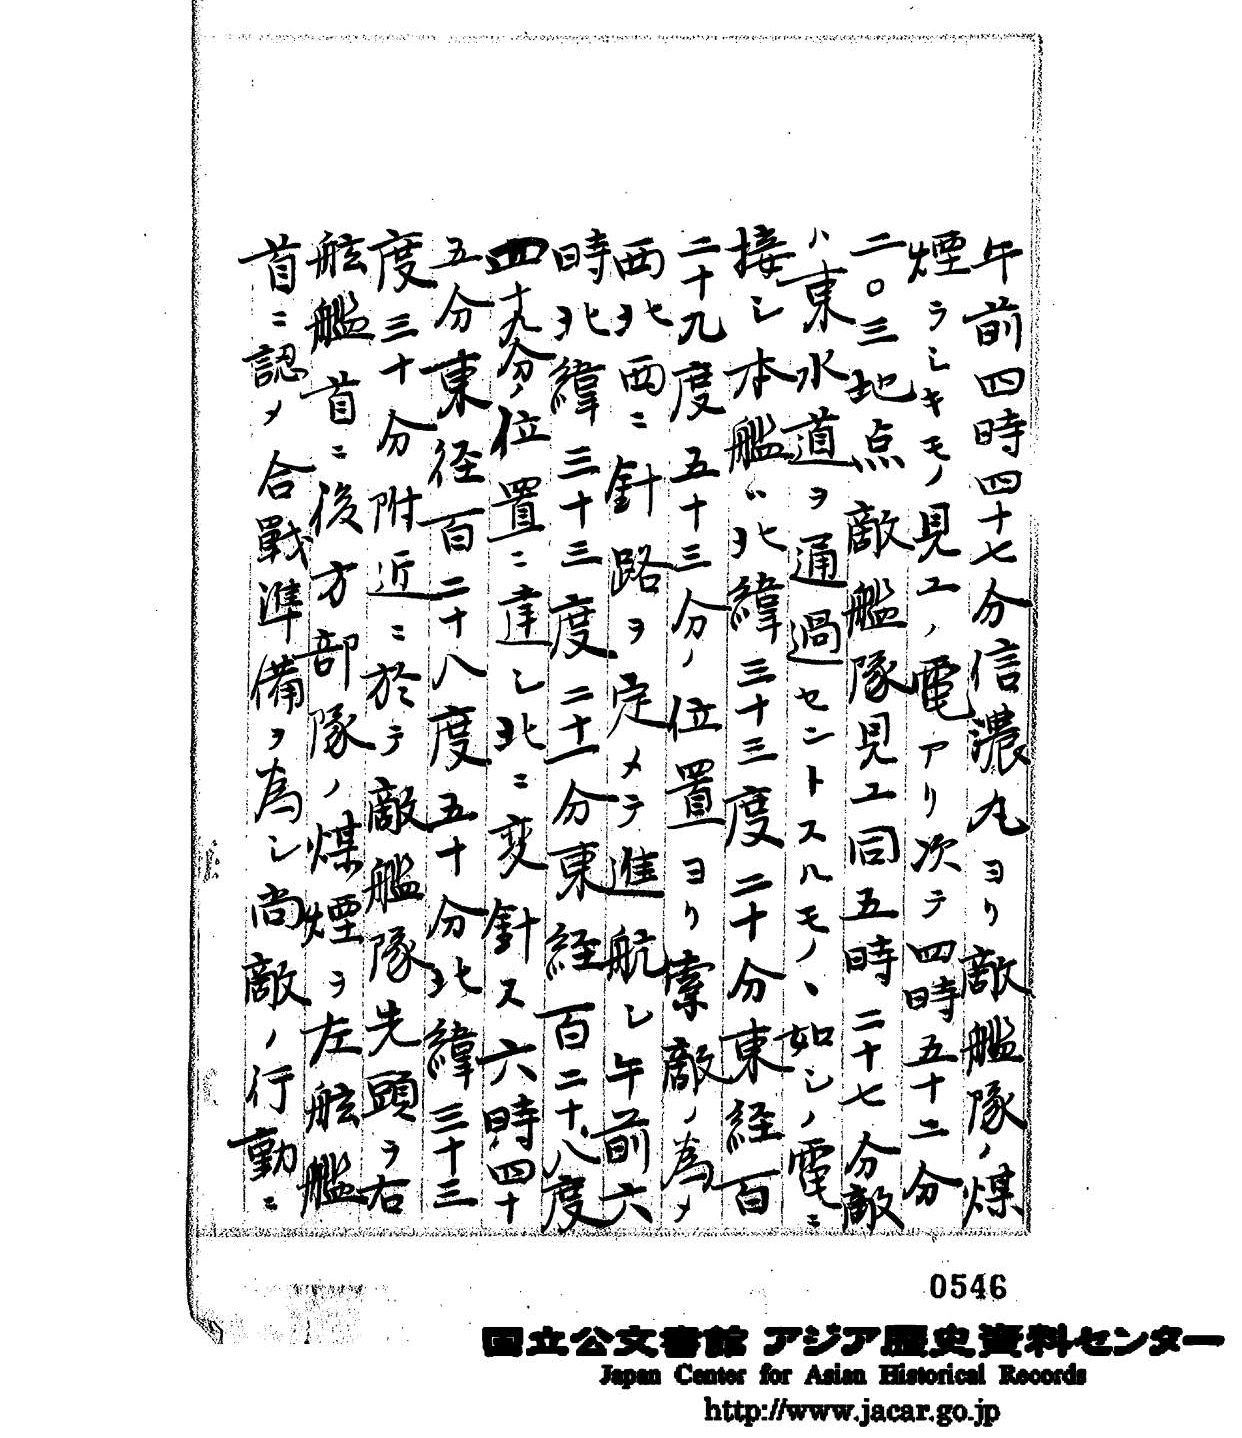 午前四時四十七分信濃丸ヨリ敵艦隊ノ煤
煙ラシキモノ見ユノ電アリ次テ四時五十二分
二〇三地点敵艦隊見ユ同五時二十七分敵
ハ東水道ヲ通過セントスルモノヽ如シノ電ニ
接シ本艦ハ北緯三十三度二十分東経百
二十九度五十三分ノ位置ヨリ索敵ノ為メ
西北西ニ針路ヲ定メテ進航シ午前六
時北緯三十三度二十一分東経百二十八度
四十九分ノ位置ニ達シ北ニ変針ス六時四十
五分東径百二十八度五十分北緯三十三
度三十分附近ニ於テ敵艦隊先頭ヲ右
舷艦首ニ後方部隊ノ煤煙ヲ左舷艦
首ニ認メ合戰準備ヲ為シ尚敵ノ行動ニ
0546
国立公文書館 アジア歴史資料センター
Japan Center for Asian Historical Records
http://www.jacar.go.jp